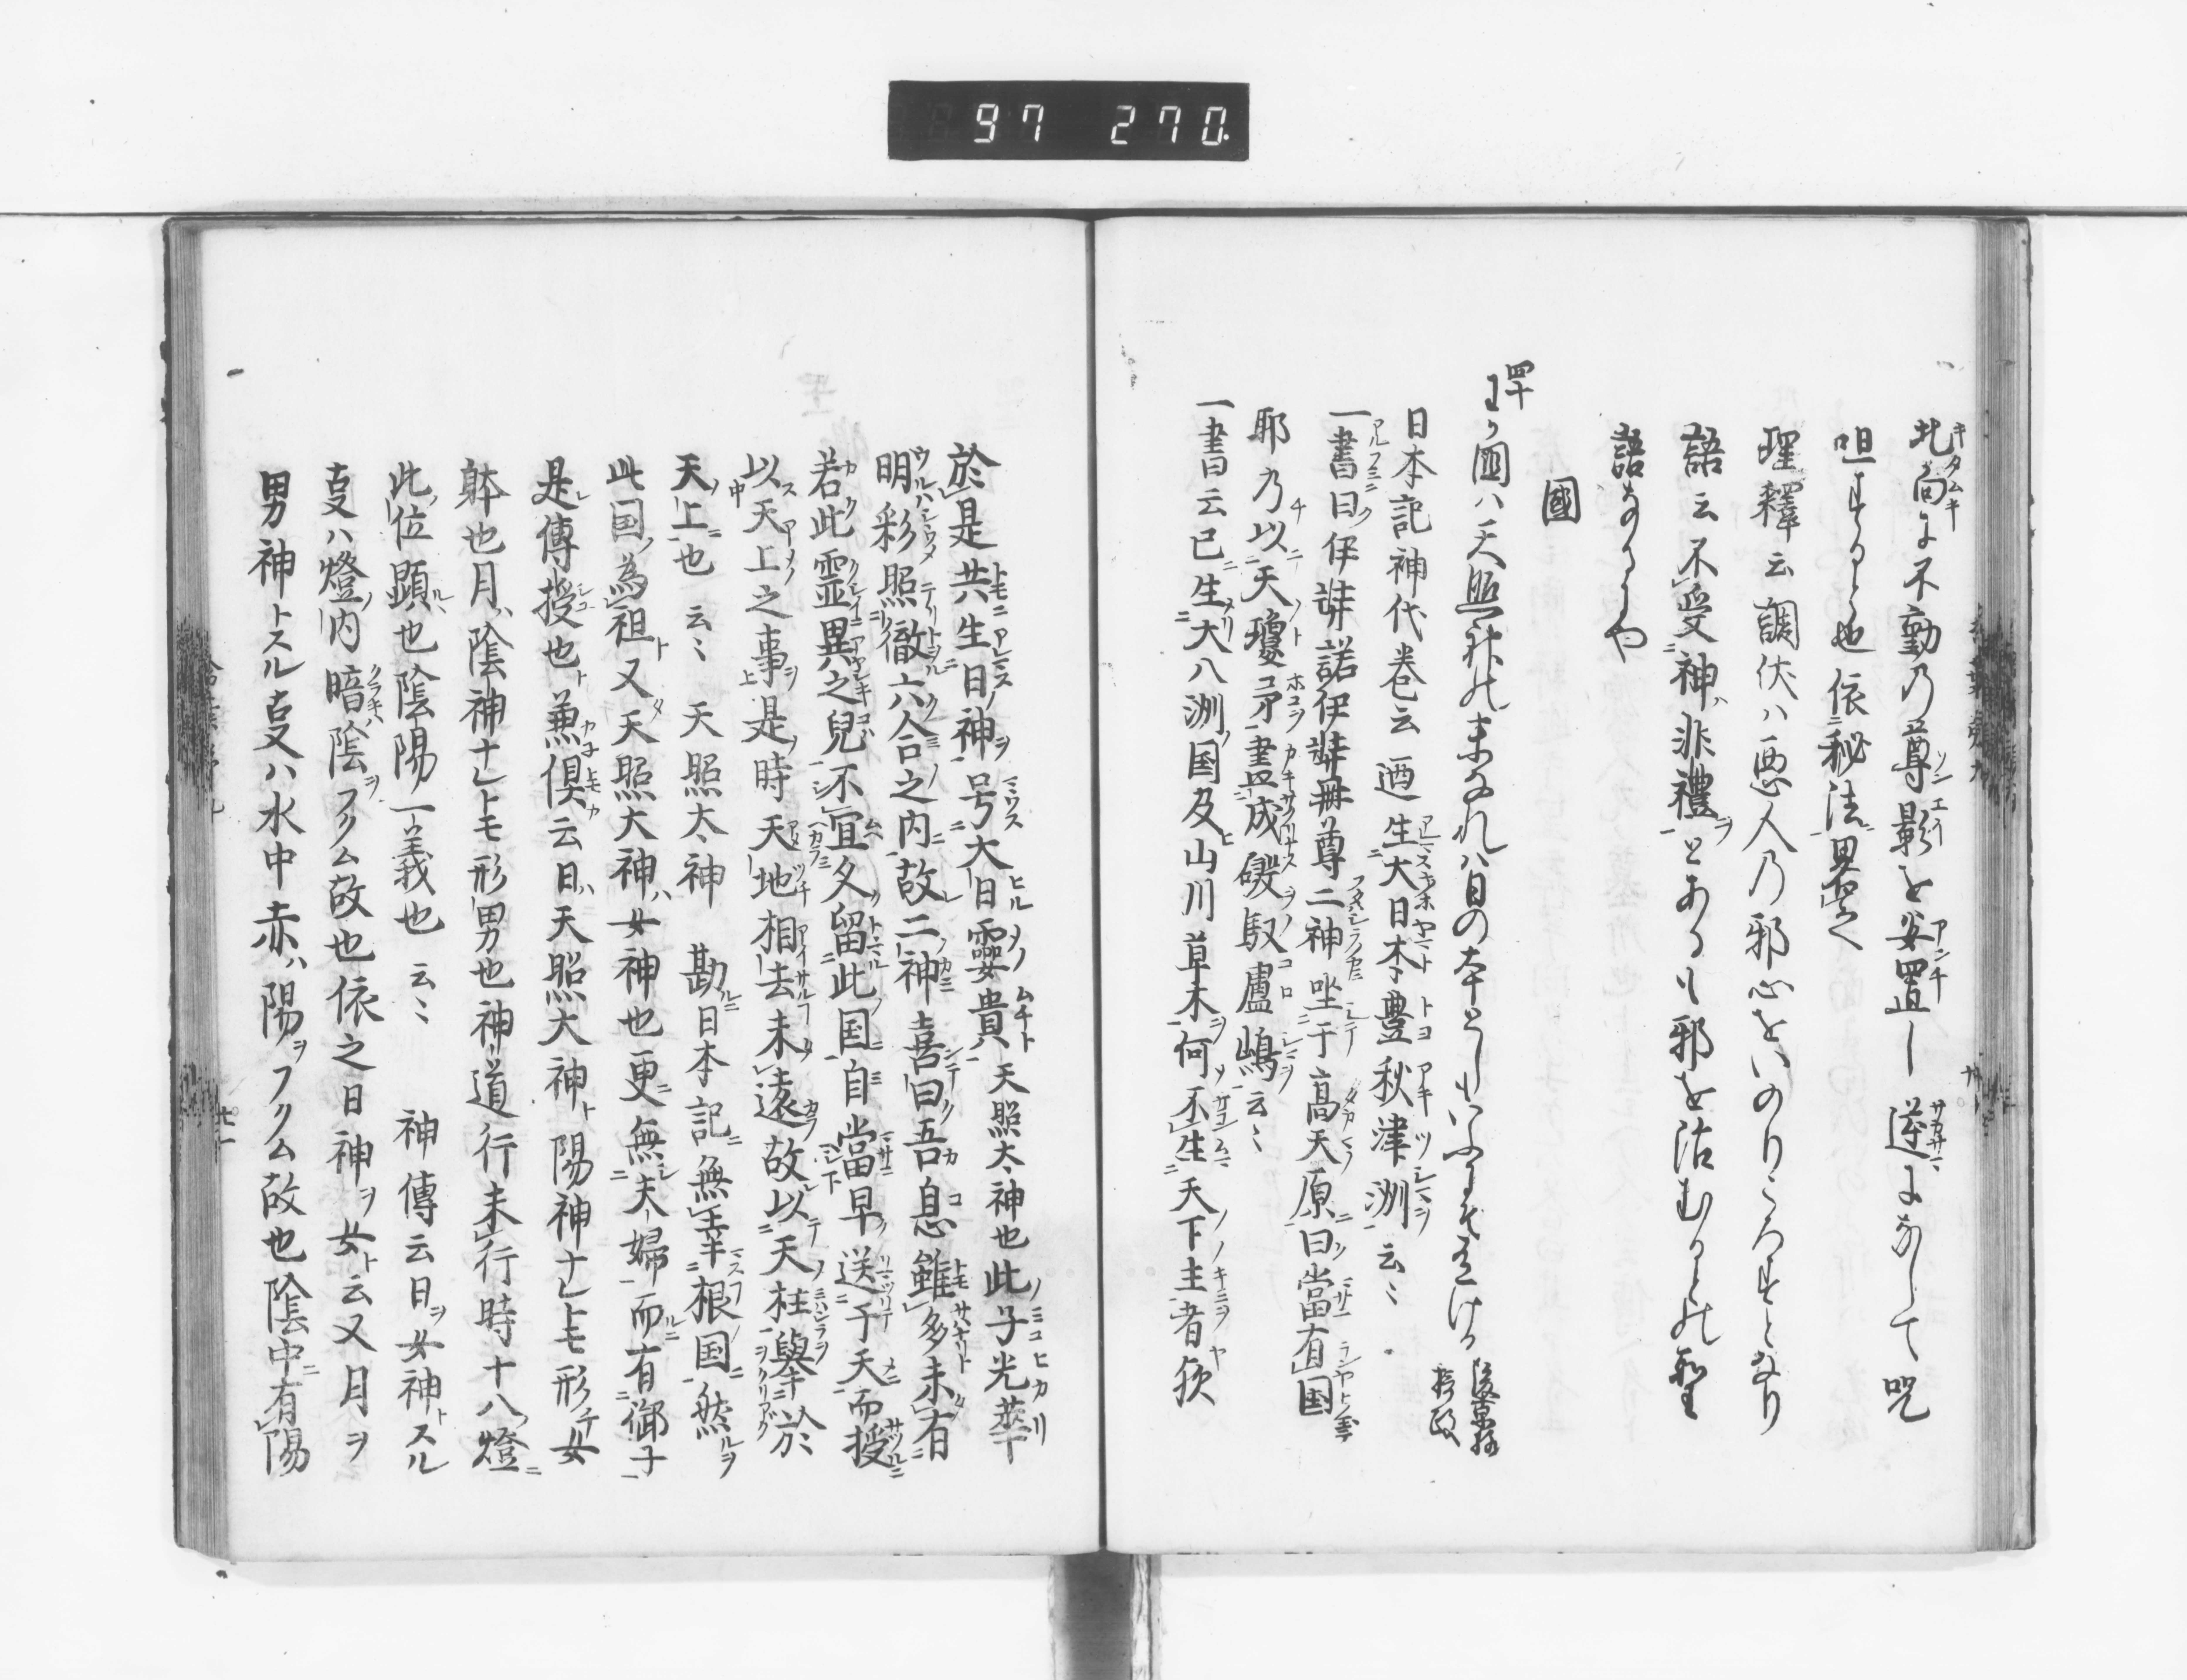 97 270.
北向に不動乃尊影を安置し逆になして呪
咀するとと也依秘法畧之
理釋云調伏ハ悪人乃邪心をいのりころすとなり
語云不受神非禮とあるハ邪を沽むるとの聖
語なるにや
國
四十
わか國ハ天照神の末なれハ日の本としもいふにそ有ける 後京極摂政
日本記神代巻云迺生大日本豊秋津洲云〻
一書曰伊弉諾伊弉冊尊二神坐于高天原曰當有国
耶乃以天瓊矛畫成磤馭盧嶋云〻
一書云已生大八洲国及山川草木何不生天下主者欤
於是共生日神号大日孁貴天照太神也此子光華
明彩照徹六合之内故二神喜曰吾息雖多未有
若此霊異之兒不宜久留此国自當早送于天而授
以天上之事是時天地相去未遠故以天柱舉於
天上也云〻 天照太神 勘日本記無幸根国然
此国為祖又天照大神女神也更無夫婦而有御子
是傳授也兼倶云日天照大神陽神ナレトモ形女
躰也月陰神ナレトモ形男也神道行未行時十八燈
此位顕也陰陽一義也云〻 神傳云日ヲ女神トスル
㕝ハ燈内暗陰ヲフクム故也依之日神ヲ女ト云又月ヲ
男神トスル㕝ハ水中赤ハ陽ヲフクム故也陰中有陽